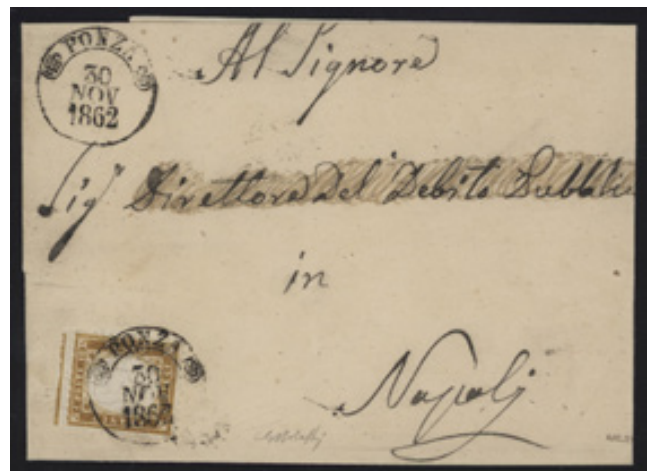 PONZA
30
NOV
1862
Al Signore
Sig.r Direttore Del Debito Pubblic
in
Napoli
PONZA
30
NOV
1862